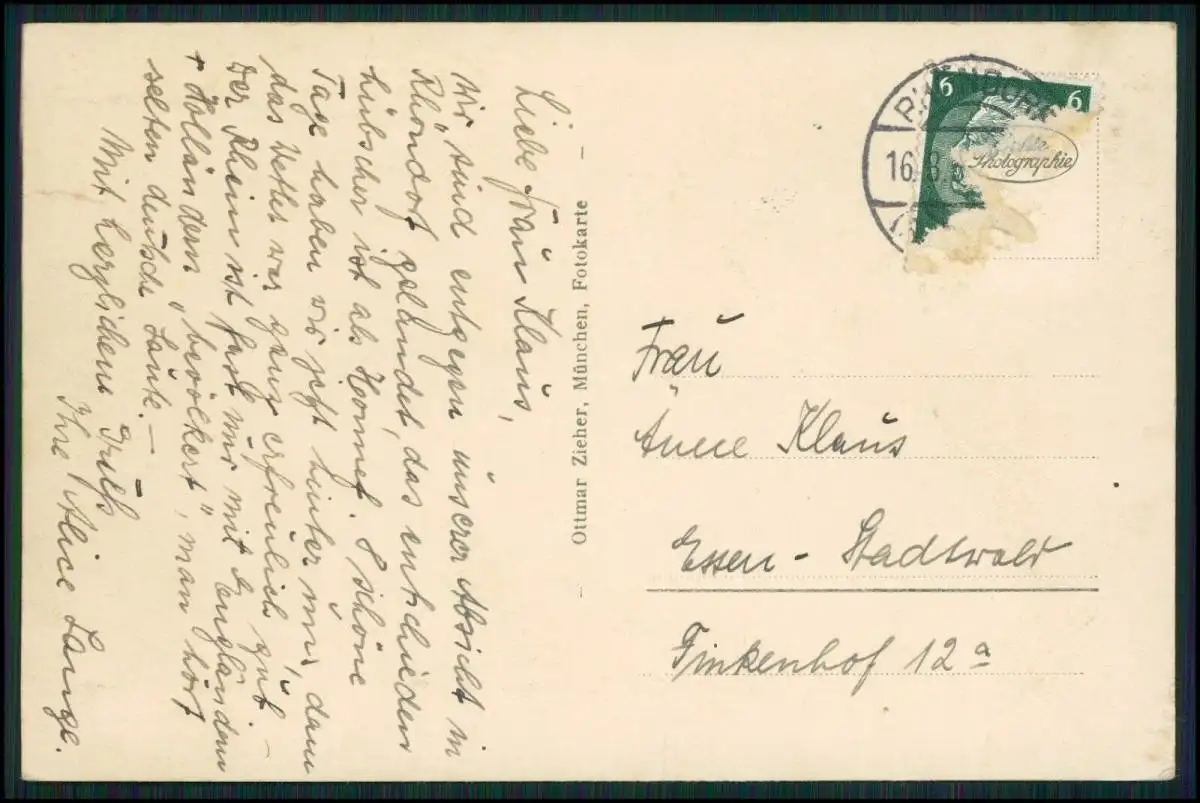 Liebe Frau Klaus,
wir sind entgegen unserer Absicht in
Rhöndorf gelandet, das entschieden
hübscher ist als Honnef. 8 schöne
Tage haben wir jetzt hinter uns, denn
das Wetter war ganz erfreulich gut. –
Der Rhein ist fast nur mit Engländern
+ Holländern „bevölkert", man hört
selten deutsche Laute. –
Mit herzlichem Gruß
Ihre Alice Lange.
Ottmar Zieher, München, Fotokarte
6 6
16. 8.
Photographie
Frau
Anne Klaus
Essen - Stadtwald
Finkenhof 12a